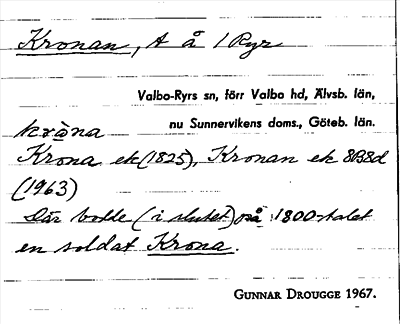 Kronan, t å 1 Ryr
Valbo-Ryrs sn, förr Valbo hd, Älvsb. län,
nu Sunnervikens doms., Göteb. län.
kròna
Krona ek (1825), Kronan ek 8B8d
(1963)
Där bodde (i slutet) på 1800-talet
en soldat Krona.
GUNNAR DROUGGE 1967.